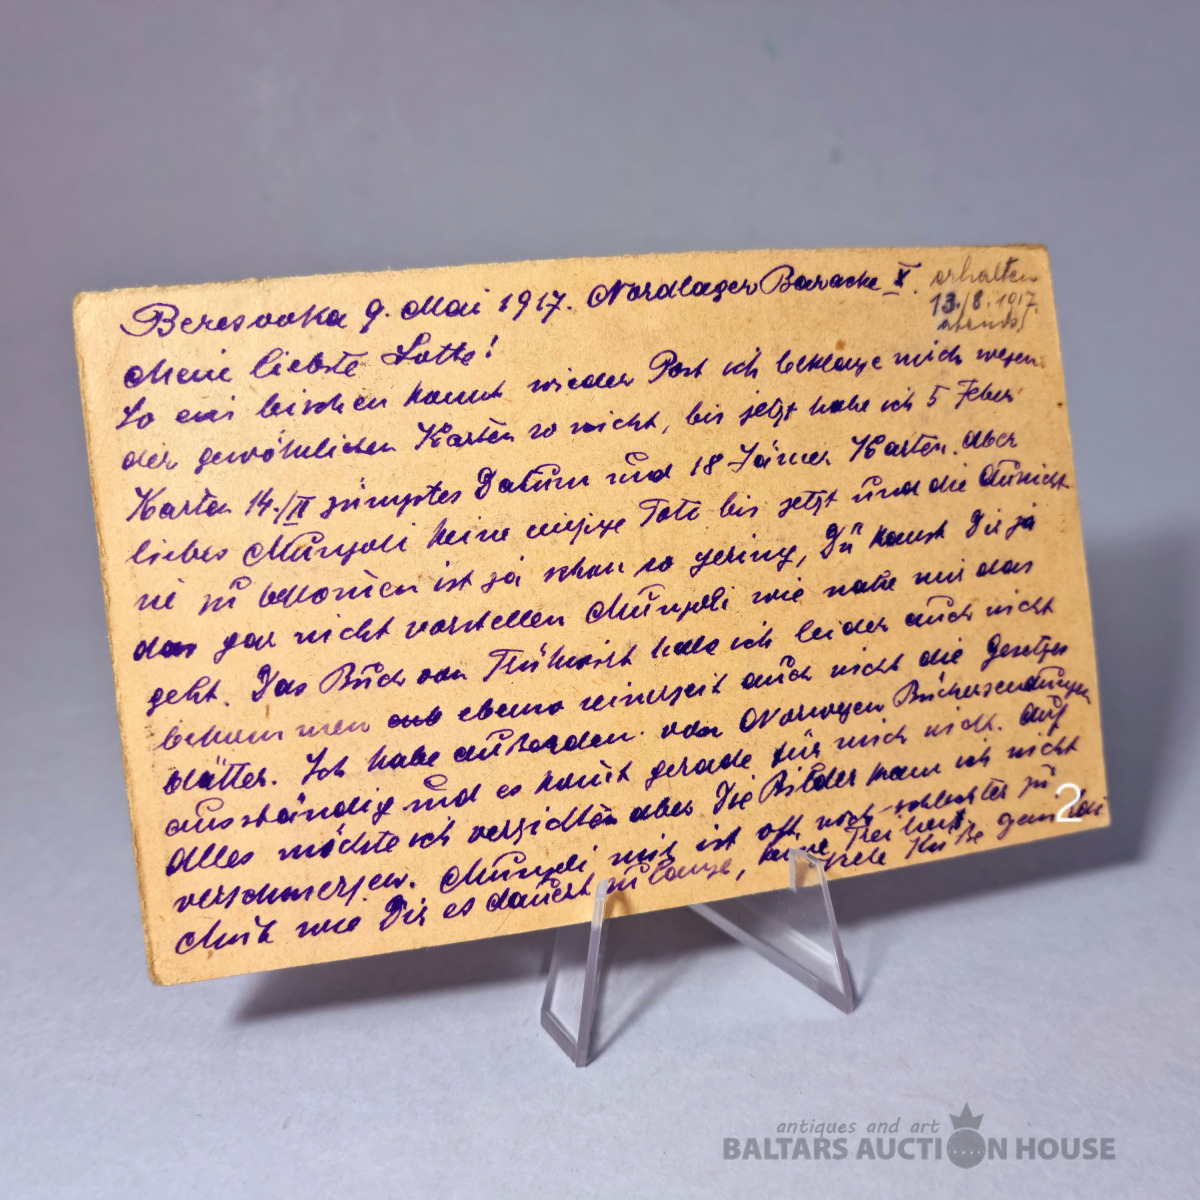 Beresovka 9. Mai 1917. Nordlager Baracke X.
erhalten
13./8. 1917
abends
Meine liebste Lotte!
So ein bischen kommt wieder Post ich beklage mich wegen
der gewöhnlichen Karten so nicht, bis jetzt habe ich 5 Feber
Karten 14./II jüngstes Datum und 18 Jänner Karten. Aber
liebes keine einzige Foto bis jetzt und die Aussicht
sie zu bekommen ist ja schon so gering, Du kannst Dir ja
das gar nicht vorstellen wie nahe mir das
geht. Das Buch von habe ich leider auch nicht
bekommen ebenso seinerzeit auch nicht die
blätter. Ich habe außerdem von Norwegen Büchersendungen
ausständig und es kommt gerade für mich nicht. Auf
Alles möchte ich verzichten aber Die Bilder kann ich nicht
verschmerzen. mir ist oft noch schlechter zu
Mut wie Dir es dauert zu lange, keine Freiheit. Küße
2
antiques and art
BALTARS AUCTION HOUSE